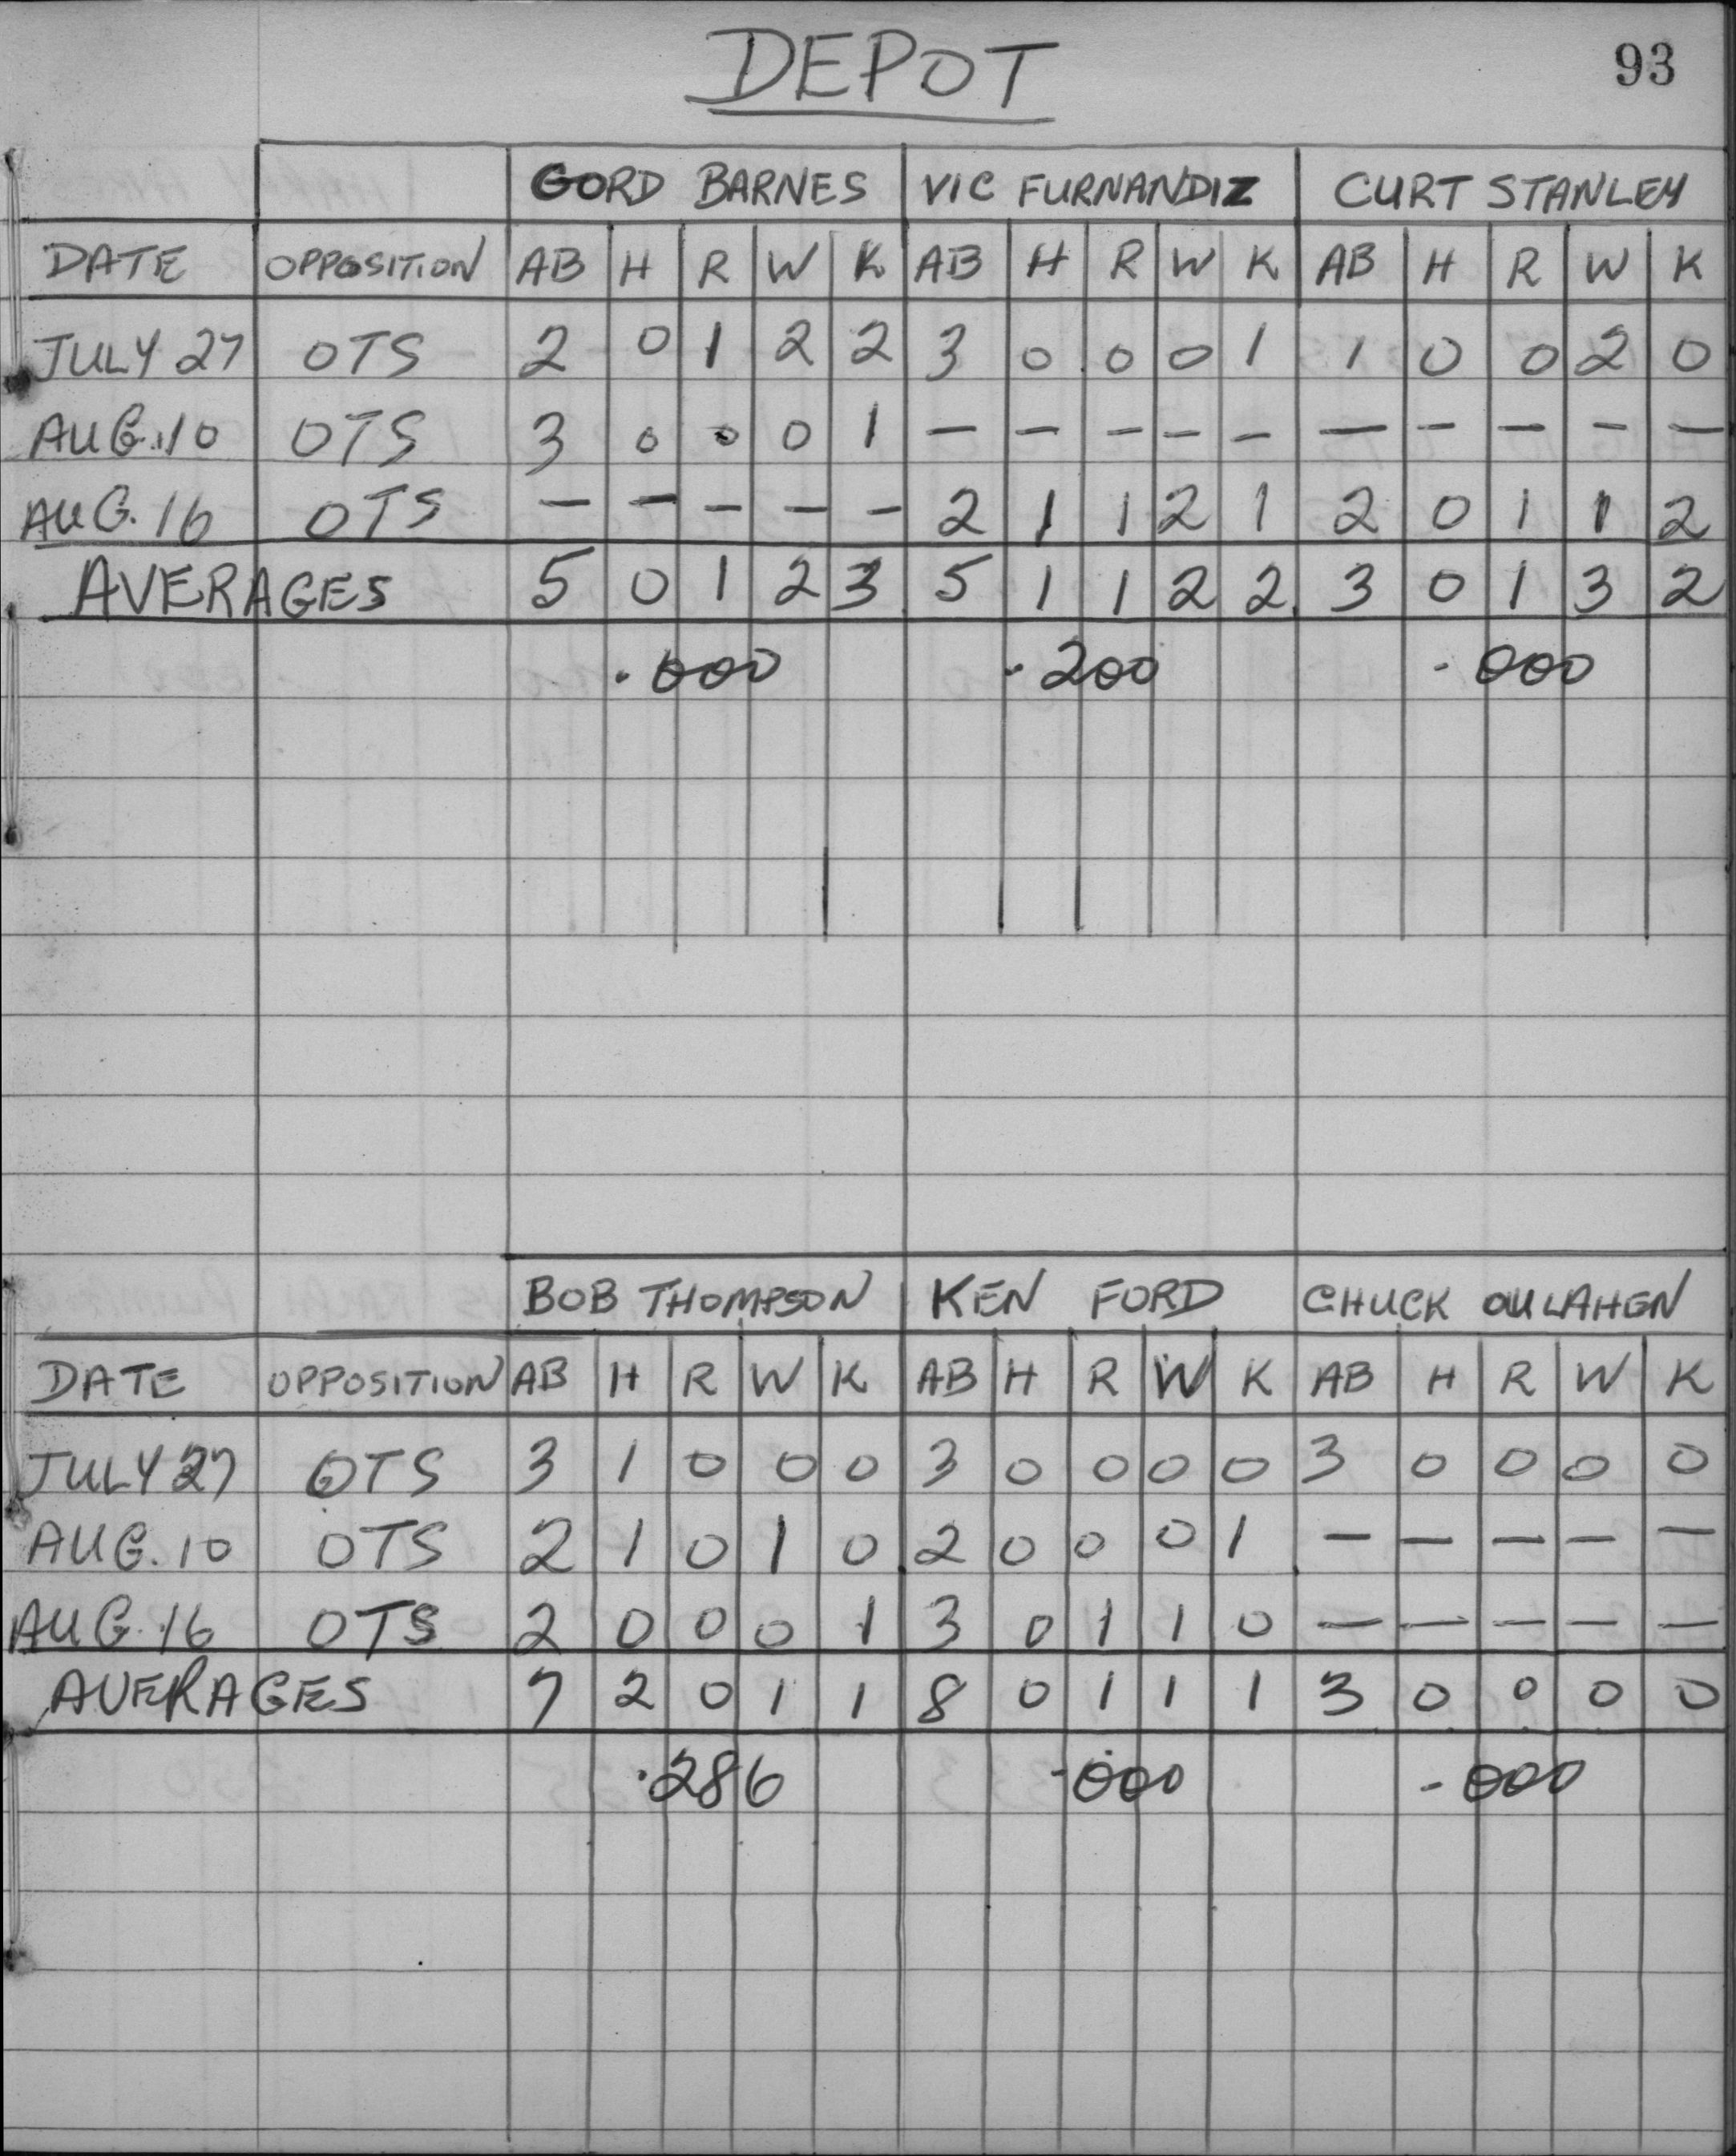 DEPOT
93
GORD BARNES VIC FURNANDIZ CURT STANLEY
DATE OPPOSITION AB H R W K AB H R W K AB H R W K
JULY 27 OTS 2 0 1 2 2 3 0 0 0 1 1 0 0 2 0
AUG. 10 OTS 3 0 0 0 1 — — — — — — — — — —
AUG. 16 OTS — — — — — 2 1 1 2 1 2 0 1 1 2
AVERAGES 5 0 1 2 3 5 1 1 2 2 3 0 1 3 2
.000 .200 .000
BOB THOMPSON KEN FORD CHUCK OULAHEN
DATE OPPOSITION AB H R W K AB H R W K AB H R W K
JULY 27 OTS 3 1 0 0 0 3 0 0 0 0 3 0 0 0 0
AUG. 10 OTS 2 1 0 1 0 2 0 0 0 1 — — — — —
AUG. 16 OTS 2 0 0 0 1 3 0 1 1 0 — — — — —
AVERAGES 7 2 0 1 1 8 0 1 1 1 3 0 0 0 0
.286 .000 .000